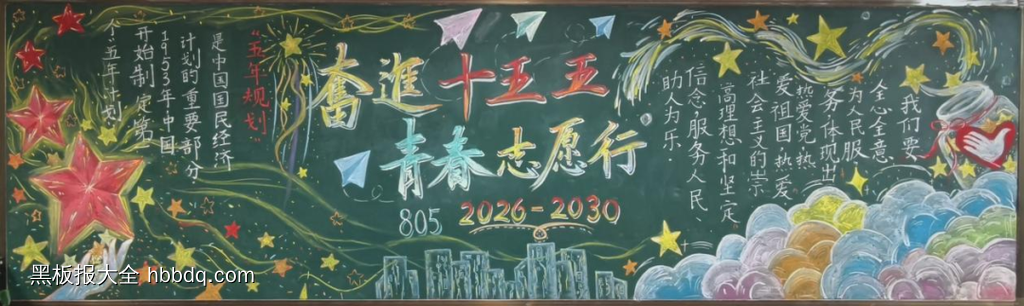 "五年规划"
是中国国民经济
计划的重要部分
1953年中国
开始制定第
个五年计划
奮進十五五
青春志愿行
805
2026-2030
我们要
全心全意
为人民服
务,体现出
热爱党热
爱祖国热爱
社会主义的崇
高理想和坚定
信念,服务人民、
助人为乐.
黑板报大全 hbbdq.com